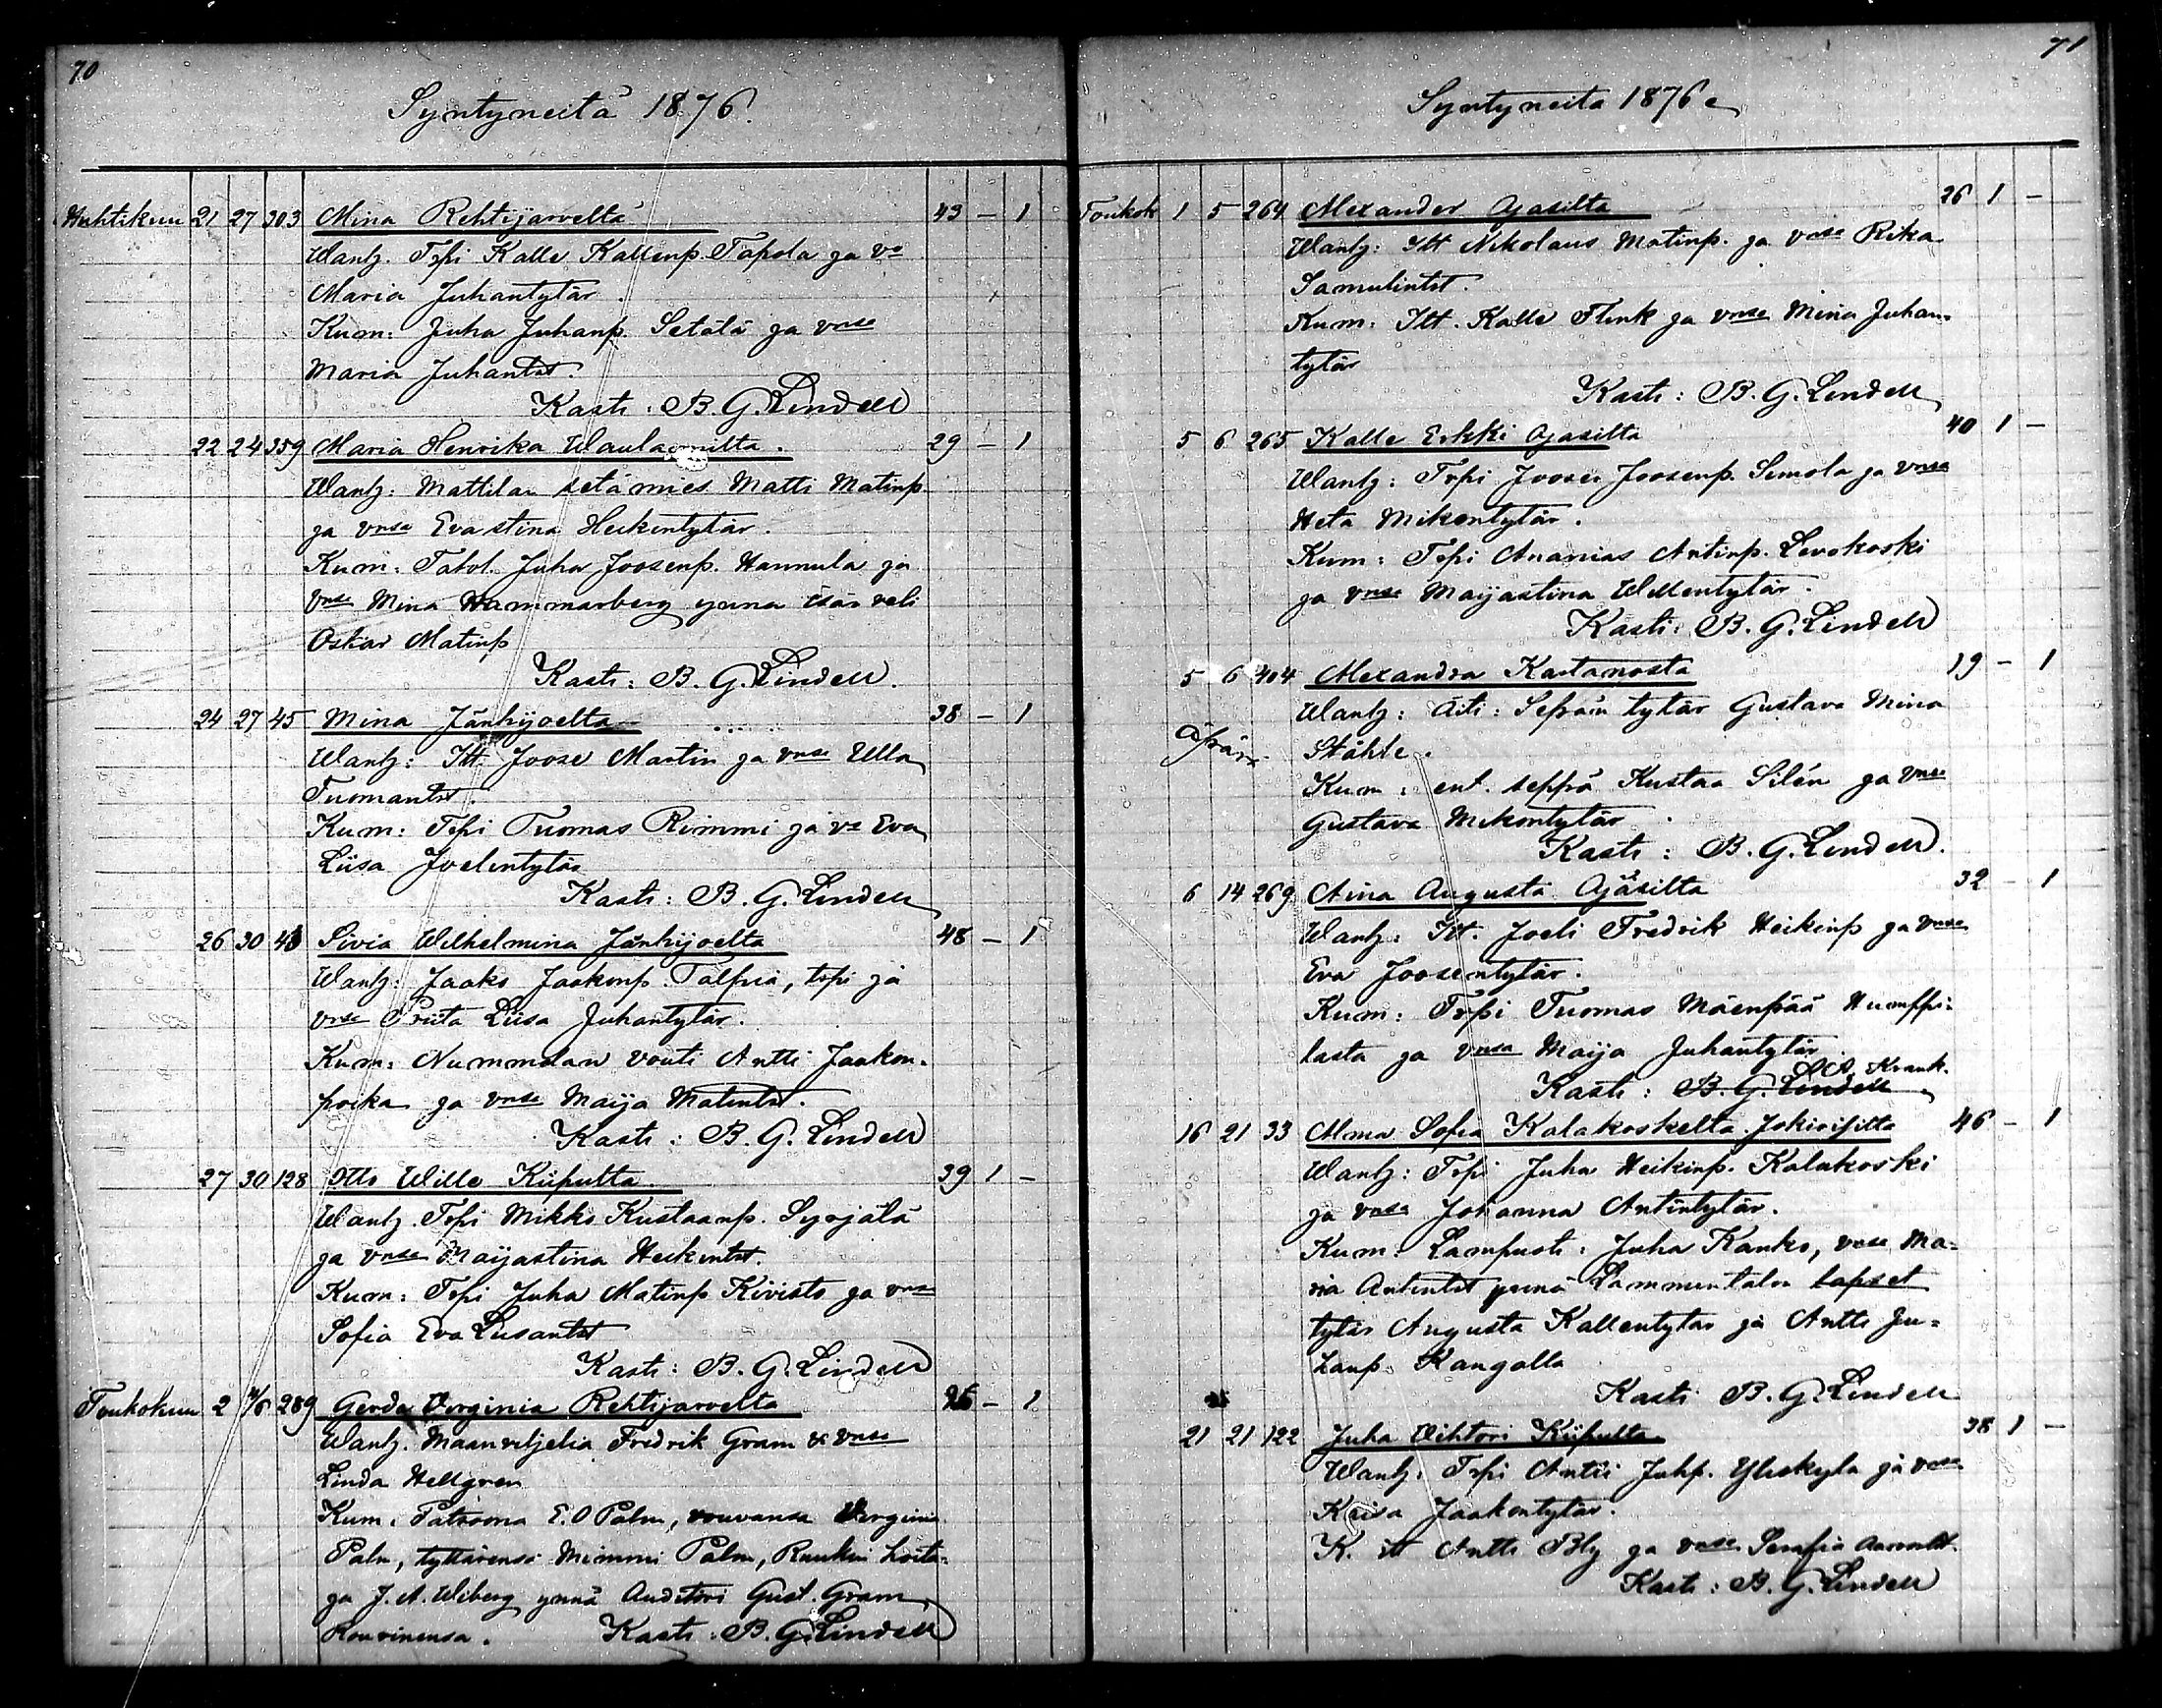 70
Syntyneitä 1876.
Huhtikuu 21 27 303 Mina Rehtijärveltä 43 – 1
Wanh. Trpi Kalle Kallenp. Tapola ja vo
Maria Juhantytär.
Kum: Juha Juhanp. Setälä ja vnsa
Maria Juhantr.
Kasti: B. G. Lindell
22 24 359 Maria Henrika 29 – 1
Wanh: Mattilan setämies Matti Matinp.
ja vnsa Evastina Heikintytär.
Kum: Juha Joosenp. Hannula ja
vnsa Mina Hammarberg ynnä isän veli
Oskar Matinp
Kasti: B. G. Lindell.
24 27 45 Mina Jänhijoelta 38 – 1
Wanh: Itt. Joose Martin ja vnsa Ulla
Tuomantr.
Kum: Trpi Tuomas Rimmi ja va Eva
Liisa Joelintytär
Kasti: B. G. Lindell
26 30 Sivia Wilhelmina Jänhijoelta 48 – 1
Wanh: Jaako Jaakonp. Talpia, trpi ja
vnsa Priita Liisa Juhantytär.
Kum: Nummelan vouti Antti Jaakon-
poika ja vnsa Maija Matintr.
Kasti: B. G. Lindell
27 30 128 Otto Wille Kiipulta 39 1 –
Wanh. Trpi Mikko Kustaanp. Syrjälä
ja vnsa Maijastina Heikintr.
Kum: Trpi Juha Matinp Kivistö ja vnsa
Sofia Eva Liisantr
Kasti: B. G. Lindell
Toukokuu 2 4/6 289 Gerda Virginia Rehtijärveltä – 1
Wanh. Maanviljeliä Fredrik Gram & vnsa
Linda Hellgren
Kum. Patroona E. O Palm, rouvansa Virginia
Palm, tyttärensä Mimmi Palm, Ruukin hoita-
ja J. A. Wiberg ynnä Auditöri Gust. Gram
Rouvinensa. Kasti: B. G. Lindell
71
Syntyneitä 1876
Toukok 1 5 264 Alexander Ojasilta 26 1 –
Wanh: Itt Nikolaus Matinp. ja vnsa Rika
Samulintr.
Kum: Itt. Kalle Flink ja vnsa Mina Juhan-
tytär
Kasti: B. G. Lindell
5 6 265 Kalle Erkki Ojasilta 40 1 –
Wanh: Trpi Joose Joosenp. Simola ja vnsa
Heta Mikontytär.
Kum: Trpi Ananias Antinp. Levokoski
ja vnsa Maijastina Willentytär.
Kasti: B. G. Lindell
5 6 404 Alexandra Kartanosta 19 – 1
Wanh: Äiti: Sepän tytär Gustava Mina
Äpärä Ståhle.
Kum: ent. seppä Kustaa Silén ja vnsa
Gustava Mikontytär
Kasti: B. G. Lindell.
6 14 269 Aina Augusta Ojasilta 32 – 1
Wanh: Itt. Joeli Fredrik Heikinp ja vnsa
Eva Joosentytär.
Kum: Trpi Tuomas Mäenpää Humppi-
lasta ja vnsa Maija Juhantytär.
Kasti: B. G. Lindell Krank.
16 21 33 Alma Sofia Kalakoskelta Jokioisilta 46 – 1
Wanh: Trpi Juha Heikinp. Kalakoski
ja vnsa Johanna Antintytär.
Kum: Lampuoti: Juha Kanko, vnsa Ma-
ria Antintr ynnä Lammintalon lapset
tytär Augusta Kallentytär ja Antti Ju-
hanp. Kangalla
Kasti B. G. Lindell
21 21 122 Juha Vihtori Kiipulta 38 1 –
Wanh: Trpi Antti Juhp. Yliskylä ja vnsa
Kaisa Jaakontytär.
K. itt Antti Bly ja vnsa Serafia
Kasti: B. G. Lindell